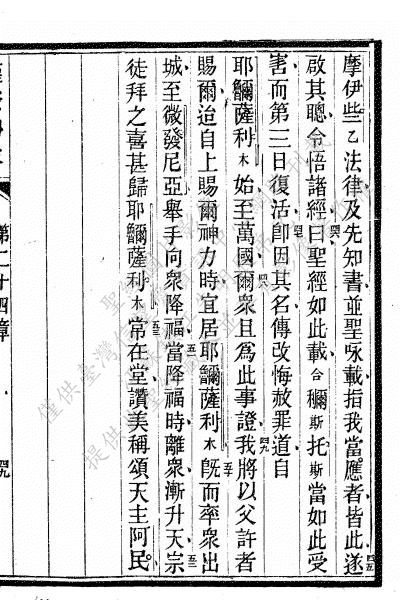 摩伊些乙法律及先知書並聖咏載指我當應者皆此遂四五
啟其聰令悟諸經四六曰聖經如此載合穪斯托斯當如此受
害而第三日復活四七卽因其名傳改悔赦罪道自
耶穪薩利木始至萬國四八爾衆且爲此事證四九我將以父許者
賜爾迨自上賜爾神力時宜居耶穪薩利木五十旣而率衆出
城至微發尼亞舉手向衆降福五一當降福時離衆漸升天五二宗
徒拜之喜甚歸耶穪薩利木五三常在堂讚美稱頌天主阿民
第二十四章
四九